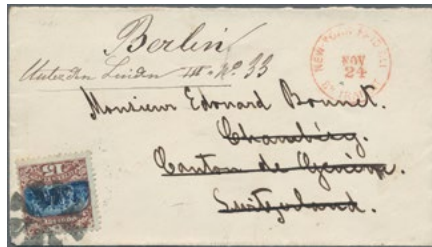 Berlin
Unter den Linden III. No. 33
NEW YORK PAID ALL
NOV
24
Br. TRANSIT
Monsieur Edouard Bonnet.
Chambézy.
Canton de Genève.
Switzerland.
15